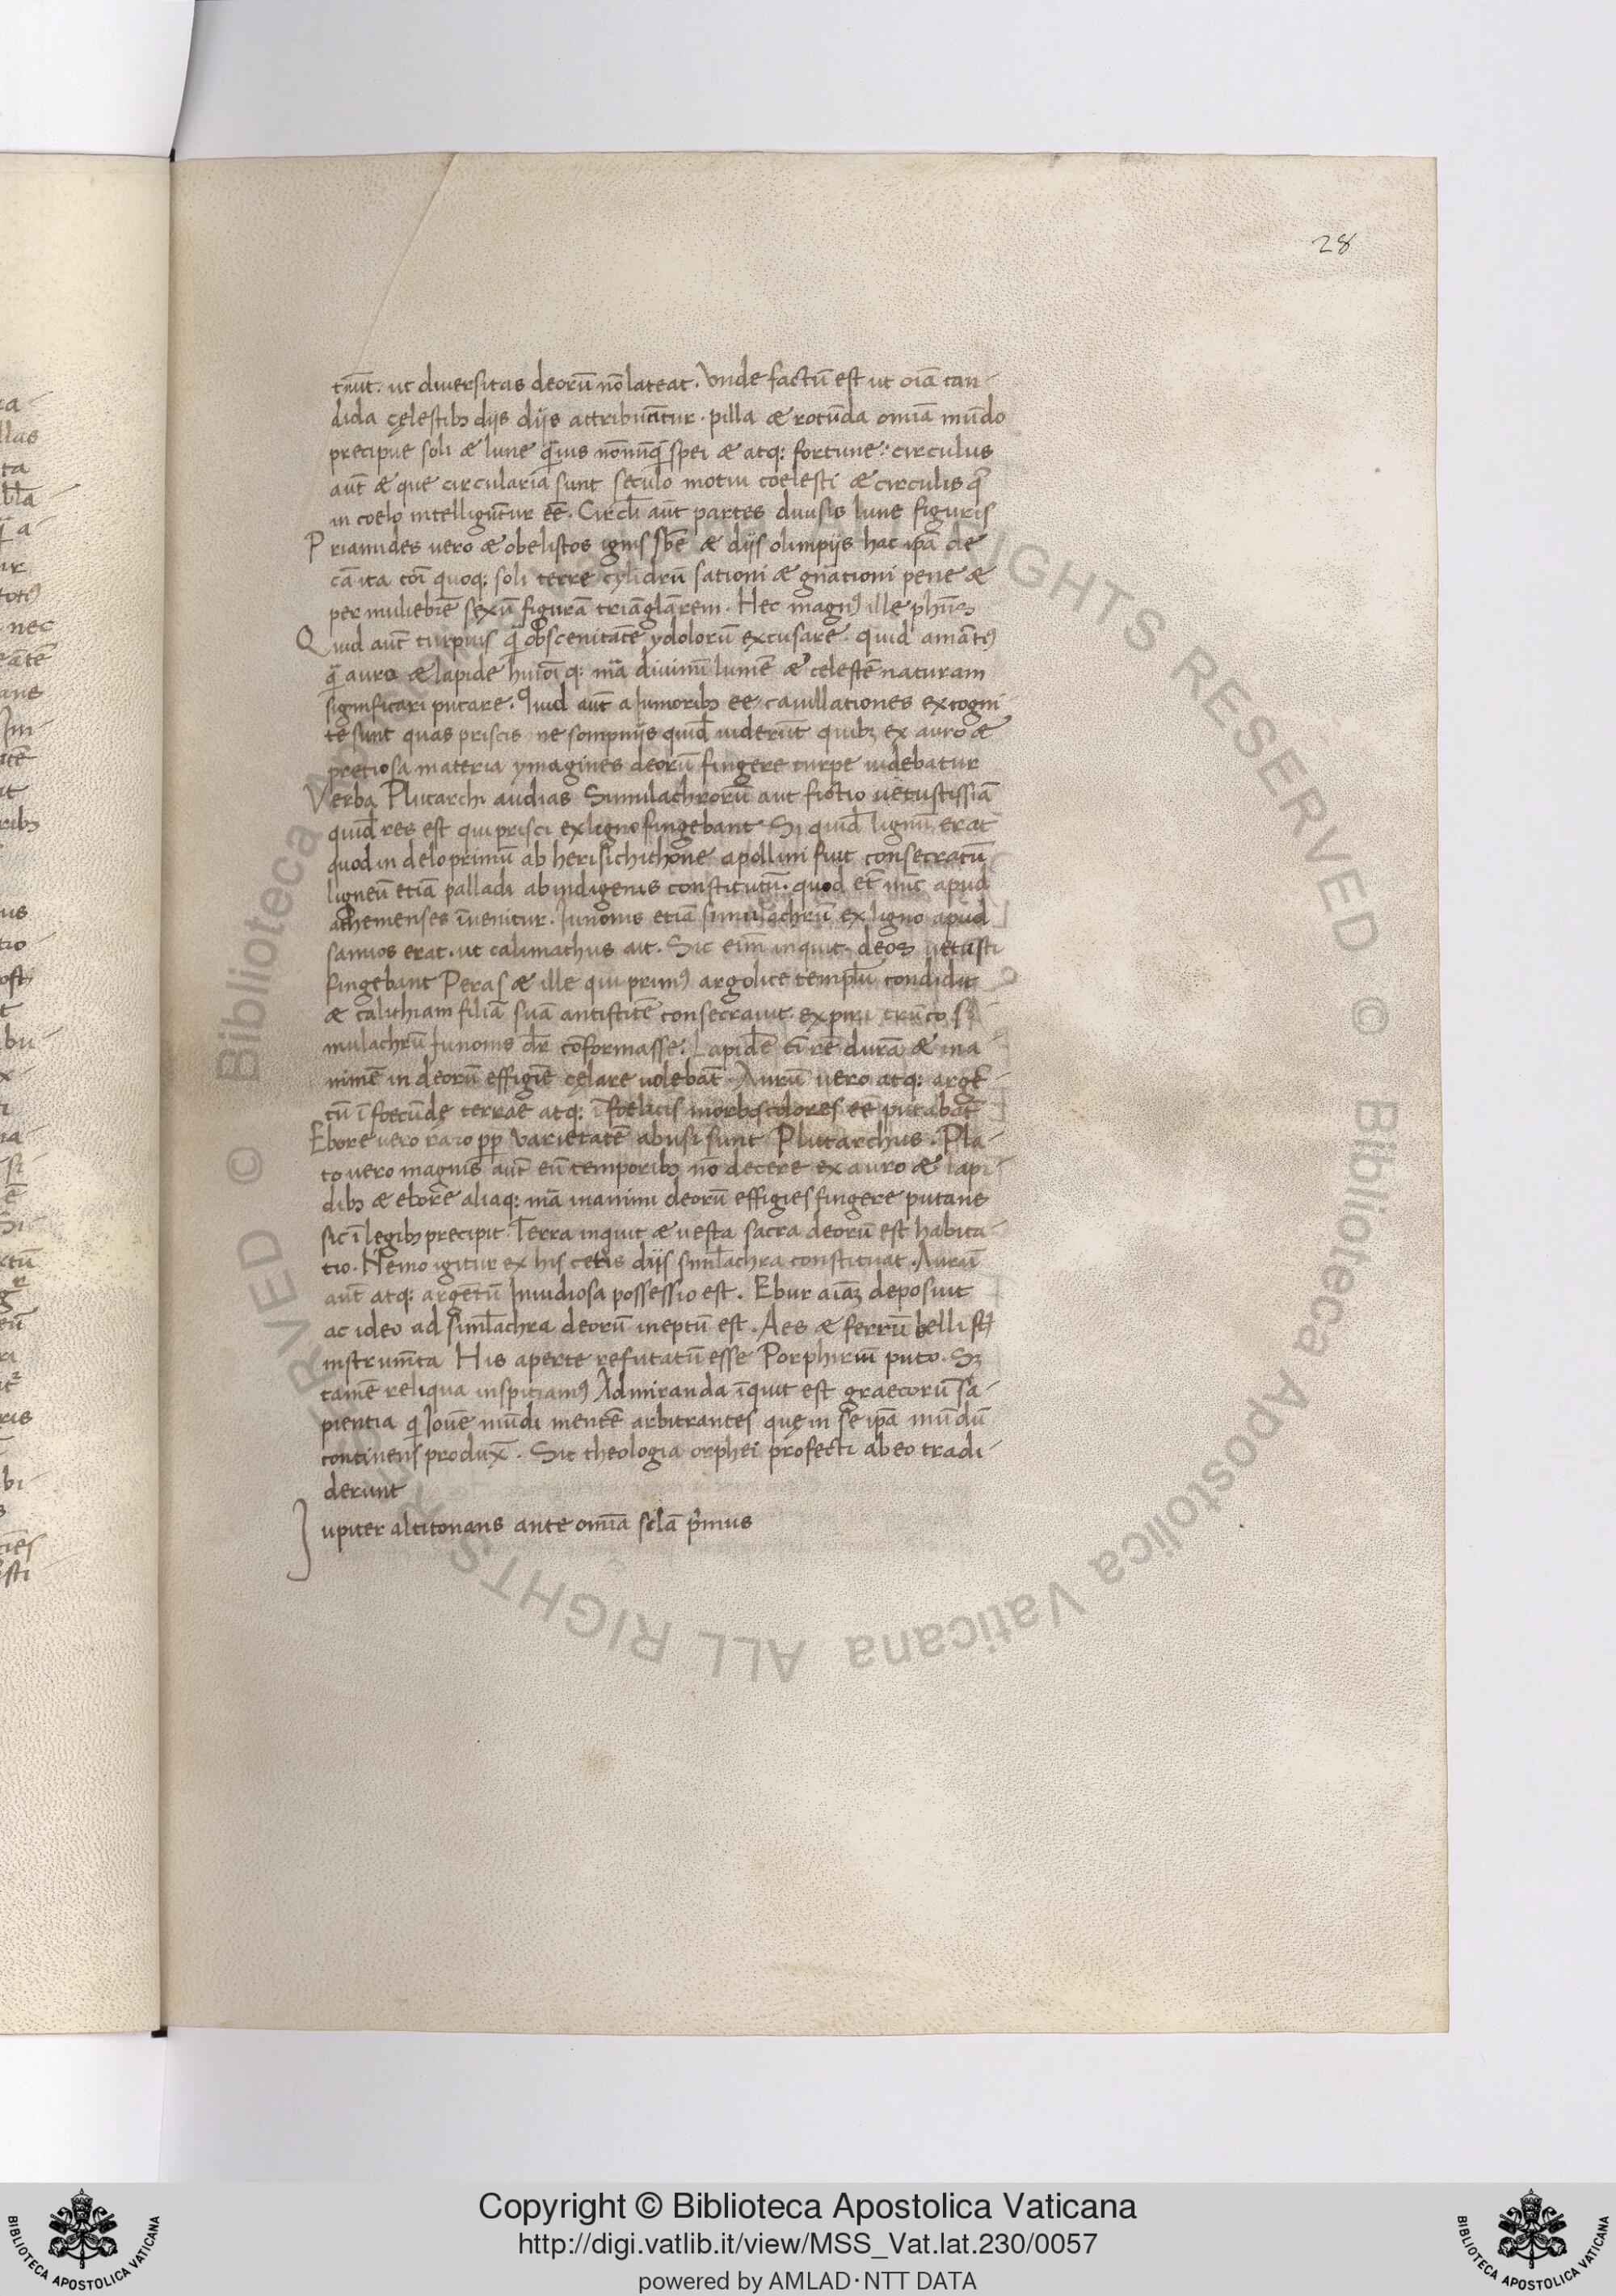 28
tāut. ut diuersitas deorū nō lateat. Vnde factū est ut oīa can-
dida cęlestibꝫ diis diis attribūūtur. pilla æ rotūda omīa mūdo
precipue soli æ lune q̄uis nōnūq̄ spei æ atq: fortune: circulus
aūt æ que circularia sunt seculo motui coelesti æ circulis q̄
in coelo intelligūtur eē. Circl̄i aūt partes diuisis lune figuris
Priamides uero æ obeliscos ignis sbē æ diis olimpiis hac ipā de
cā ita coī quoq: soli terre cylidrū sationi æ gnātioni pene æ
per muliebrē sexū figurā triāglarem. Hec magnꝰ ille phūs
Quid aūt turpius q̄ obscenitatē ydolorū excusare. quid amātiꝰ
q̄ auro æ lapide huīoīq: mā diuinū lumē æ celestē naturam
significari putare. Quid aūt a Iunioribꝫ ee cauillationes excogni-
te sunt quas priscis ne sompniis quid̄ uiderūt quibꝫ ex auro æ
pretiosa materia ymagines deorū fingere turpe uidebatur
Verba Plutarchi audias Simulachrorū aut fictio uetustissiā
quid̄ res est qui prisci ex ligno fingebant Sꝫ quid̄ lignū erat
quod in delo primū ab herisichithone apollini fuit consecratū
ligneū etiā palladi ab indigenis constitutū. quod et nūc apud
athenienses īuenitur. Iunonis etiā simulachrū ex ligno apud
samios erat. ut calimachus ait. Sic eim̄ inquit deos uetusti
fingebant Peras æ ille qui primꝰ argolice templū condidit
æ calithiam filiā suā antistitē consecrauit. ex piri trūco si-
mulachrū Iunonis dr̄ cōformasse. Lapidē ei rē durā æ ina-
nimē in deorū effigiē cęlare nolebāt. Aurū uero atq: argē-
tū ī foecūdę terrae atq: īfoelicis morbos colores eē putabāt
Ebore uero raro pp varietatē abusi sunt Plutarchus. Pla-
to uero magnis aūt eū temporibꝫ nō decere ex auro æ lapi-
dibꝫ æ ebore aliaq: mā inanimi deorū effigies fingere putans
sic ī legibꝫ precipit. Terra inquit æ uesta sacra deorū est habita-
tio. Nemo igitur ex his cetis diis siml̄achra constituat. Aurū
aūt atq: argētū Inuidiosa possessio est. Ebur aīaꝫ deposuit
ac ideo ad siml̄achra deorū ineptū est. Aes æ ferrū belli st
instrumēta His aperte refutatū esse Porphiriū puto. Sꝫ
tamē reliqua inspitiamꝰ Admiranda īquit est graecorū sa-
pientia qi Iouē mūdi mentē arbitrantes quę in se ipā mūdū
continens produx̄. Sic theologia orphei profecti ab eo tradi-
derunt
Iupiter altitonans ante omīa sclā p̄mus
Copyright © Biblioteca Apostolica Vaticana
http://digi.vatlib.it/view/MSS_Vat.lat.230/0057
powered by AMLAD·NTT DATA